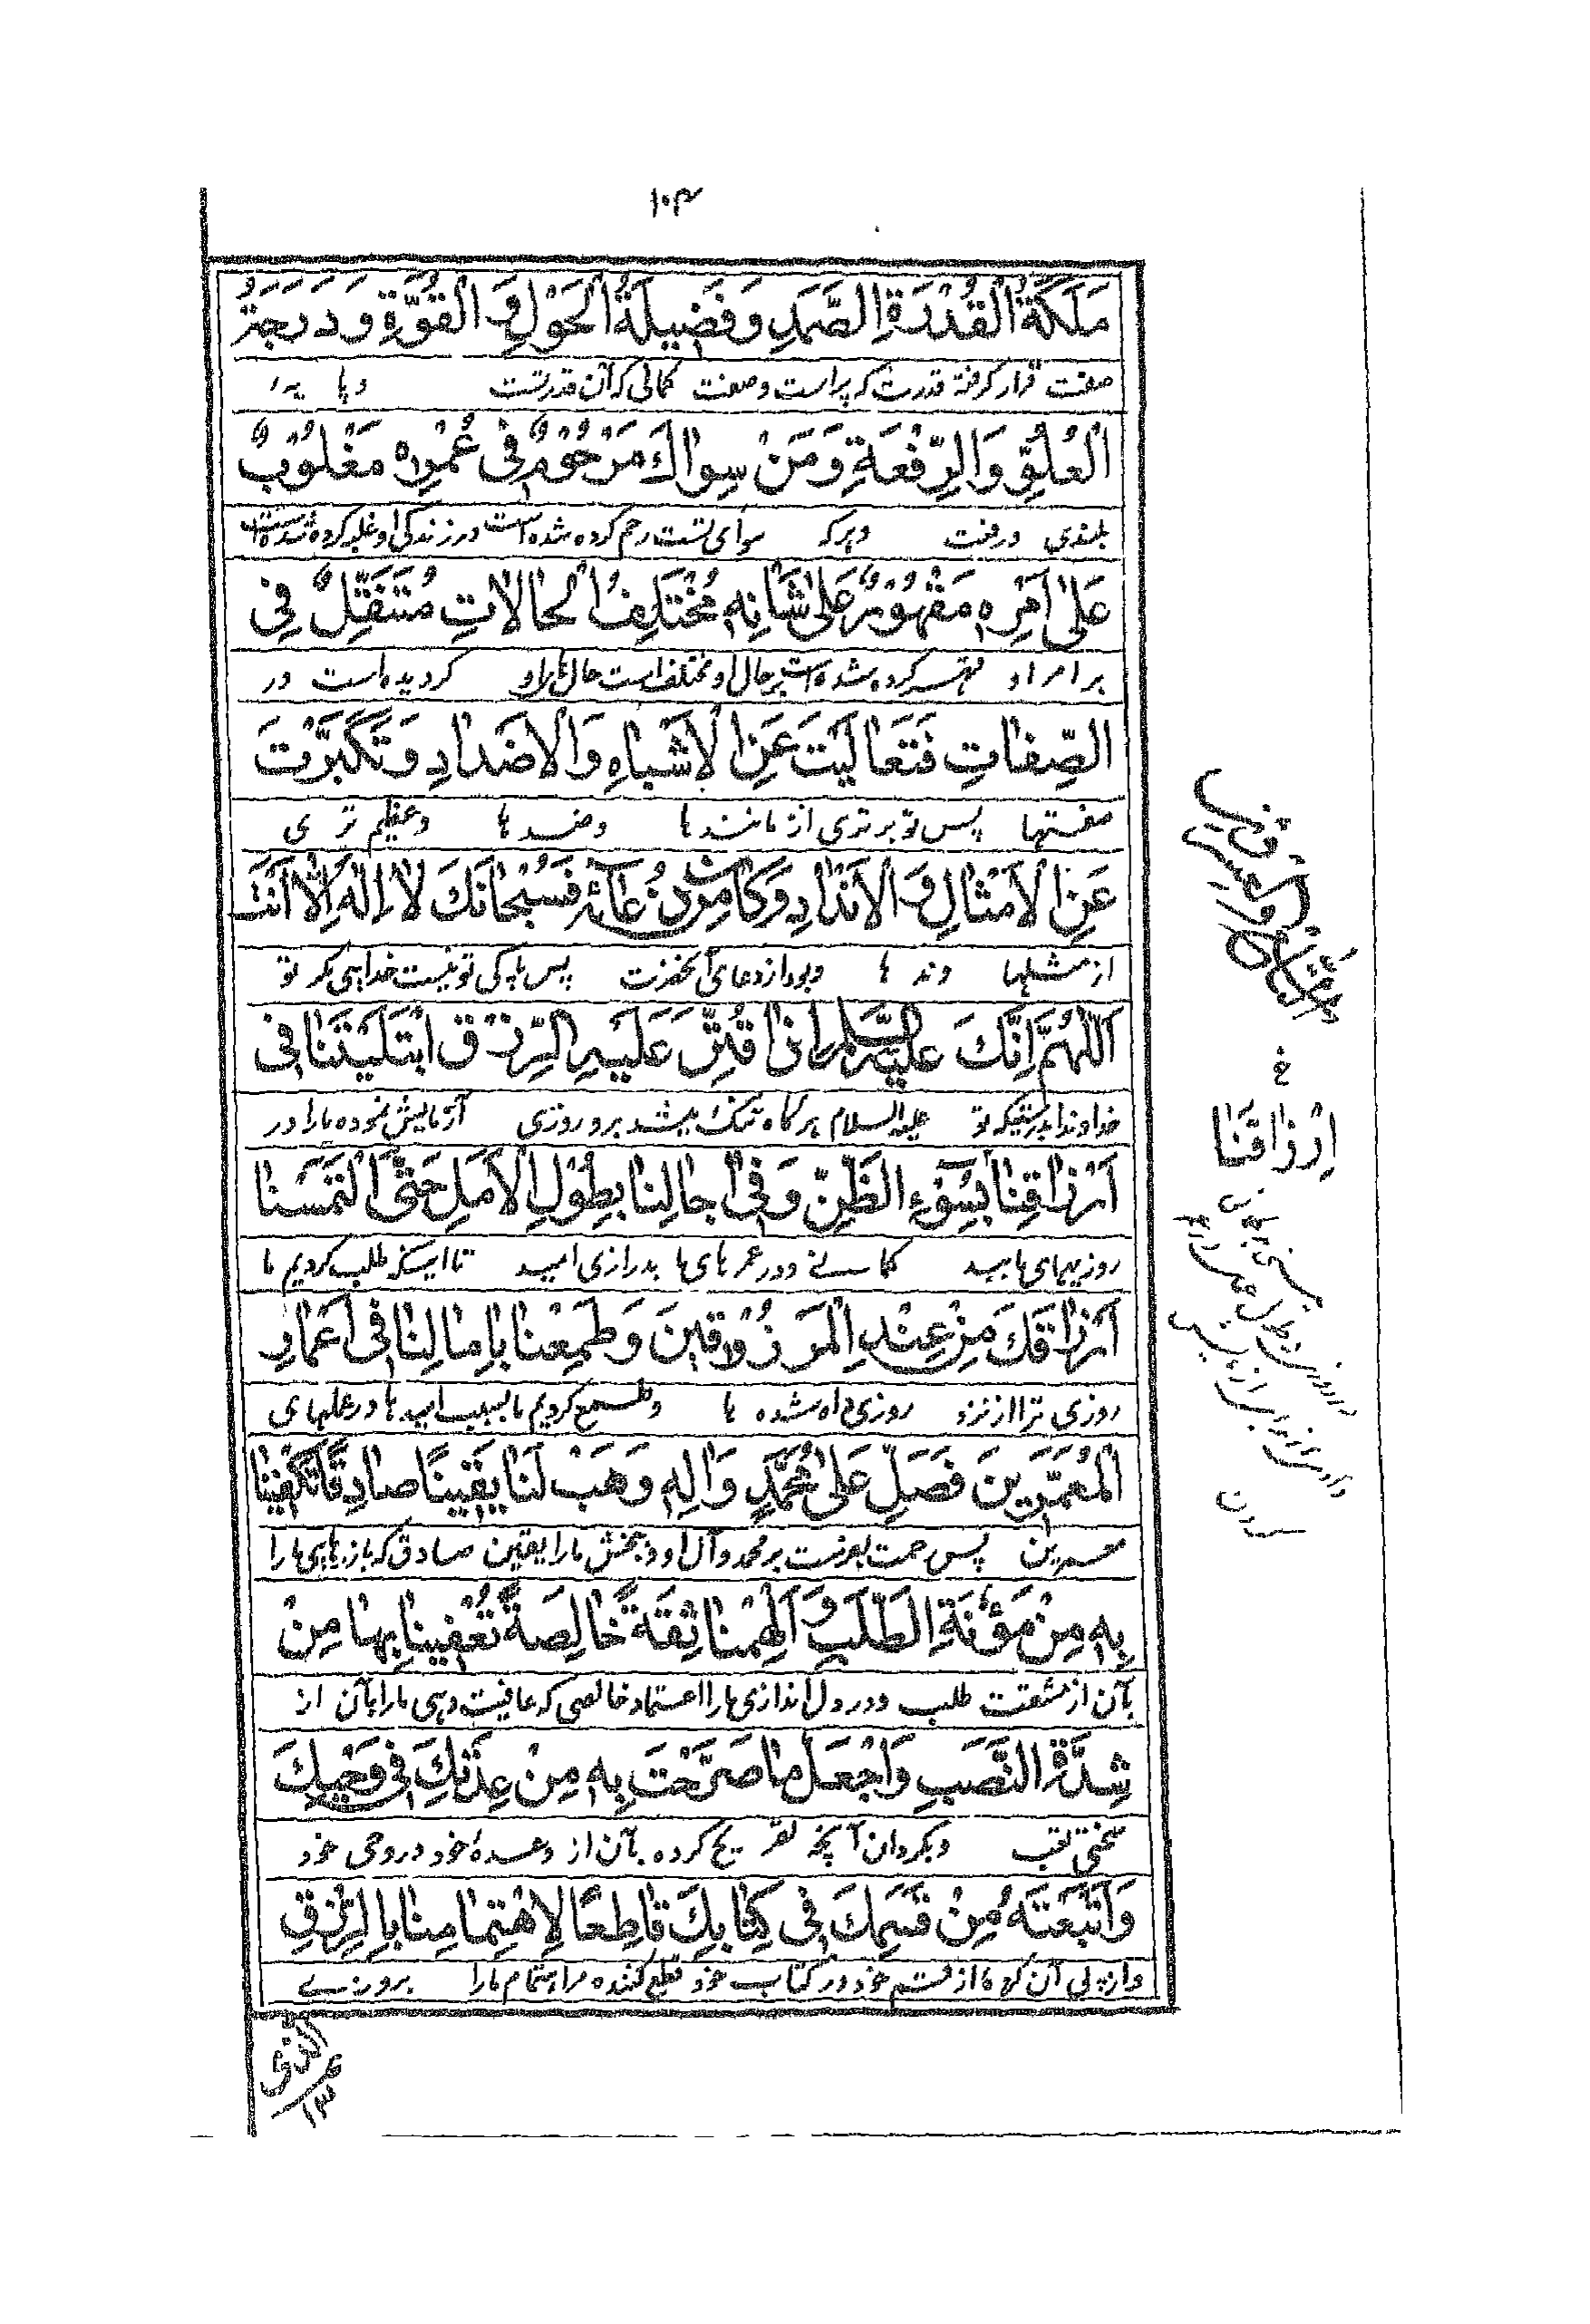 ۱۰۴
مَلَكَةُ الْقُدْرَةِ الصَّمَدِ وَفَضِيلَةُ الْحَوْلِ وَ الْقُوَّةِ وَدَرَجَةُ
صفت قرار گرفته قدرت که پر است و صفت کمالی که آن قدر تست و پا یه
الْعُلُوِّ وَالرِّفْعَةِ وَمَنْ سِواكَ مَرْحُومٌ فى عُمْرِهِ مَغْلُوبٌ
بلندی و رفعت و هر که سوای تست رحم کرده شده است در زندگی او غلبه کرده شده است
عَلىٰ اَمْرِهِ مَقْهُورٌ عَلىٰ شَانِهِ مُخْتَلِفُ الْحالاتِ مُتَنَقِّلٌ فِى
بر امر او قهر کرده شده است بر حال او مختلف است حال های او گردیده است در
الصِّفاتِ فَتَعالَيْتَ عَنِ الْاَشْباهِ وَالْاَضْدادِ وَتَكَبَّرْتَ
صفتها پس تو برتری از مانند ها و ضد ها و عظیم تر ی
عَنِ الْاَمْثالِ وَ الْاَنْدادِ وَكانَ مِنْ دُعائِهِ فَسُبْحانَكَ لا اِلٰهَ اِلّا اَنْتَ
از مثلها و ند ها و بود از دعای آنحضرت پس پاکی تو نیست خدایی مگر تو
اَللّٰهُمَّ اِنَّكَ عَلَيْهِ السَّلامُ اِذا قُتِّرَ عَلَيْهِ الرِّزْقُ ابْتَلَيْتَنا فى
خداوندا بدرستیکه تو علیه السلام هر گاه تنگ میشد برو روزی آزمایش نموده ما را در
اَرْزاقِنا بِسُوْءِ الظَّنِّ وَفى اٰجالِنا بِطُوْلِ الْاَمَلِ حَتّىٰ الْتَمَسْنا
روزیهای ما ببد گما نے و در عمر های ما بدرازی امید تا اینکه طلب کردیم ما
اَرْزاقَكَ مِنْ عِنْدِ الْمَرْزُوْقينَ وَطَمِعْنا بِاٰمالِنا فى اَعْمارِ
روزی ترا از نزد روزی داده شده ها و طمع کردیم ما بسبب امید ها در عمرهای
الْمُعَمَّرينَ فَصَلِّ عَلىٰ مُحَمَّدٍ وَاٰلِهِ وَهَبْ لَنا يَقينًا صادِقًا تَكْفينا
معمرین پس رحمت بفرست بر محمد و آل او و ببخش ما را یقین صادق که باز داری ما را
بِهِ مِنْ مَؤُنَةِ الطَّلَبِ وَ اَلْهِمْنا ثِقَةً خالِصَةً تُعْفينا بِها مِنْ
بآن از مشقت طلب و در دل اندازی ما را اعتماد خالصی که عافیت دهی ما را بآن از
شِدَّةِ النَّصَبِ وَاجْعَلْ ما صَرَّحْتَ بِهِ مِنْ عِدَتِكَ فى وَحْيِكَ
سختی تعب و بگردان آنچه تصریح کرده بآن از وعدهٔ خود در وحی خود
وَاَتْبَعْتَهُ مِنْ قَسَمِكَ فى كِتابِكَ قاطِعًا لِاهْتِمامِنا بِالرِّزْقِ
و از پی آن کرده از قسم خود در کتاب خود قطع کننده مر اهتمام ما را بروزے
خ
اِرْزاقَنا
الَّذى
۱۳